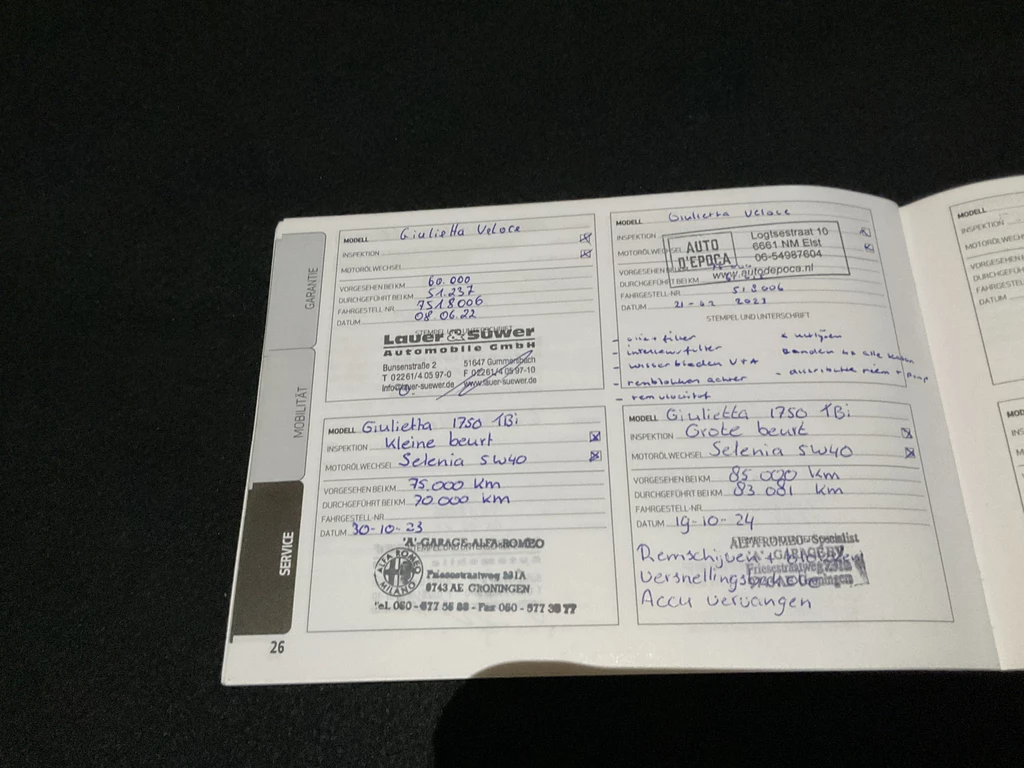 GARANTIE
MOBILITÄT
SERVICE
MODELL Giulietta Veloce
INSPEKTION
MOTORÖLWECHSEL
VORGESEHEN BEI KM 60.000
DURCHGEFÜHRT BEI KM 51.237
FAHRGESTELL-NR. 7518006
DATUM 08.06.22
STEMPEL UND UNTERSCHRIFT
Lauer & Süwer
Automobile GmbH
Bunsenstraße 2 51647 Gummersbach
T 02261/4 05 97-0 F 02261/4 05 97-10
www.lauer-suewer.de
MODELL Giulietta Veloce
INSPEKTION
MOTORÖLWECHSEL
VORGESEHEN BEI KM
DURCHGEFÜHRT BEI KM
FAHRGESTELL-NR. 518006
DATUM 2023
AUTO D'EPOCA
Logtsestraat 10
6661 NM Elst
06-54987604
www.autodepoca.nl
STEMPEL UND UNTERSCHRIFT
- filter
- interieurfilter
- wisserbladen V+A
- remblokken achter
- remvloeistof
banden 4x alle
MODELL Giulietta 1750 TBi
INSPEKTION Kleine beurt
MOTORÖLWECHSEL Selenia 5W40
VORGESEHEN BEI KM 75.000 km
DURCHGEFÜHRT BEI KM 70.000 km
FAHRGESTELL-NR.
DATUM 30-10-23
'A'-GARAGE ALFA-ROMEO
ALFA-ROMEO MILANO
Friesestraatweg 201A
9743 AE GRONINGEN
MODELL Giulietta 1750 TBi
INSPEKTION Grote beurt
MOTORÖLWECHSEL Selenia 5W40
VORGESEHEN BEI KM 85.000 km
DURCHGEFÜHRT BEI KM 83.081 km
FAHRGESTELL-NR.
DATUM 19-10-24
ALFA ROMEO Specialist
Remschijven +
Accu vervangen
26
MODELL
INSPEKTION
DATUM